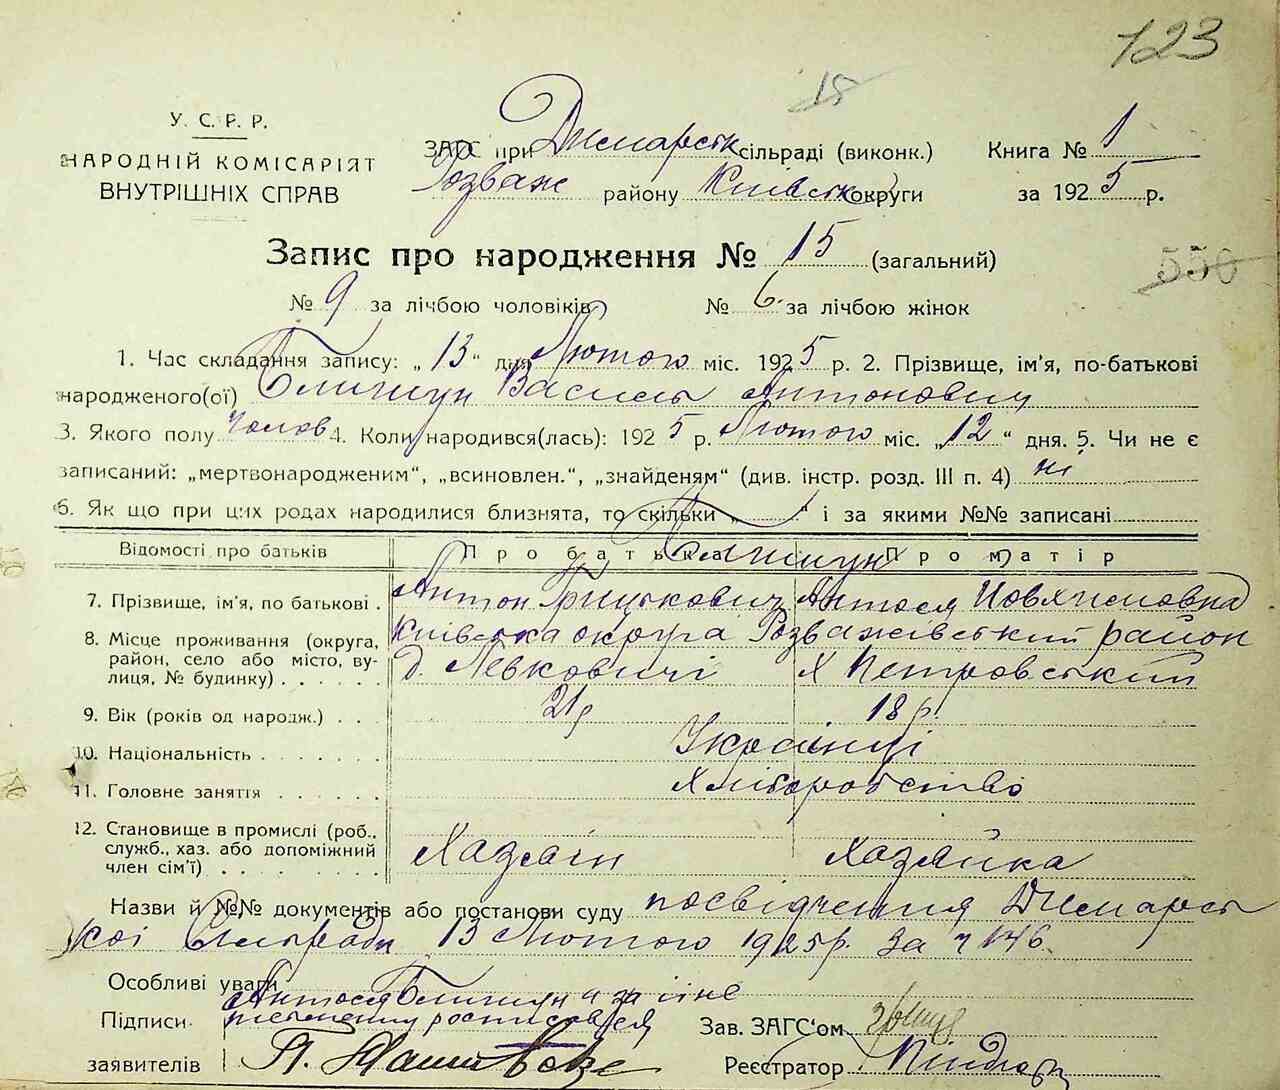 123
15
У. С. Р. Р.
НАРОДНІЙ КОМІСАРІЯТ
ВНУТРІШНІХ СПРАВ
ЗАГС при Димарськ сільраді (виконк.) Книга № 1
Розваж району Київськ округи за 1925 р.
Запис про народження № 15 (загальний)
550
№ 9 за лічбою чоловіків № 6 за лічбою жінок
1. Час складання запису: „13“ дня Лютого міс. 1925 р. 2. Прізвище, ім'я, по-батькові
народженого(ої) Василь Антонович
3. Якого полу Чолов 4. Коли народився(лась): 1925 р. Лютого міс. „12“ дня. 5. Чи не є
записаний: „мертвонародженим“, „всиновлен.“, „знайденям“ (див. інстр. розд. III п. 4) ні
6. Як що при цих родах народилися близнята, то скільки „ “ і за якими №№ записані
Відомості про батьків Про батька Про матір
7. Прізвище, ім'я, по батькові . Антон Грицькович Антося
8. Місце проживання (округа, район, село або місто, вулиця, № будинку) . . . . . . Київська округа Розважівський район
д. Левковичі х Петровський
9. Вік (років од народж.) . . . 21р 18 р.
10. Національність . . . . . . . Українці
11. Головне заняття . . . . . . Хліборобство
12. Становище в промислі (роб., служб., хаз. або допоміжний член сім'ї) . . . . . . . Хазяїн Хазяйка
Назви й №№ документів або постанови суду посвідчення Димарсь
кої Сільради 13 Лютого 1925р. за
Особливі уваги
Антося а за їїне
Підписи
заявителів
Зав. ЗАГС'ом
Реєстратор